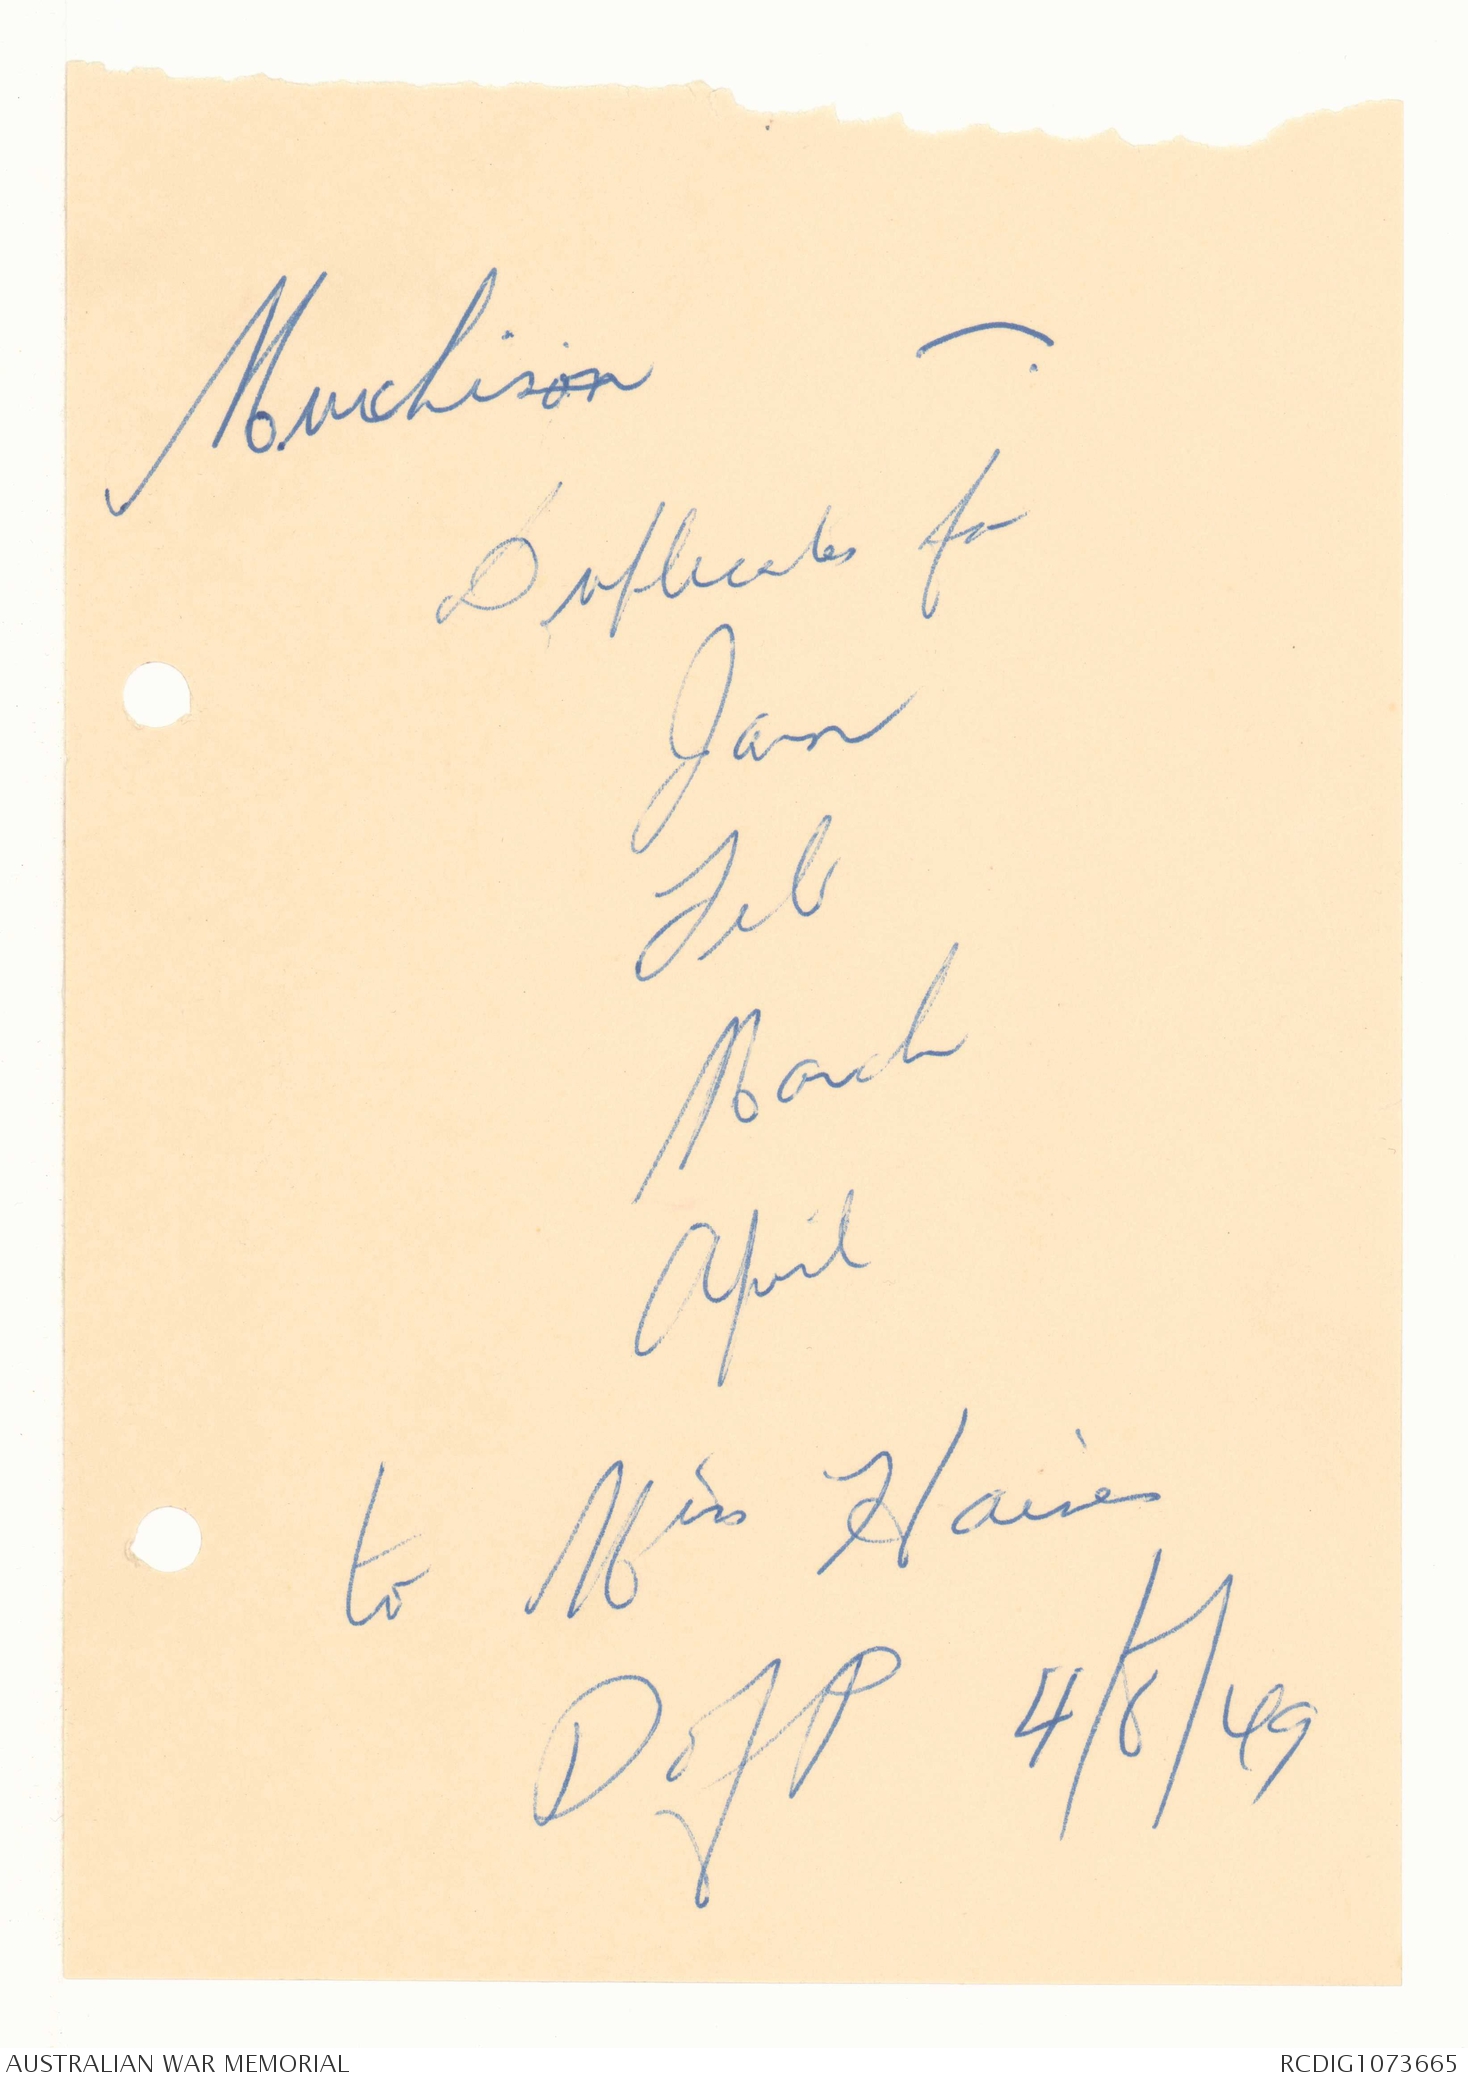 Murchison
Duplicates for
Jan
Feb
March
April
to Miss Haines
4/8/49
AUSTRALIAN WAR MEMORIAL
RCDIG1073665